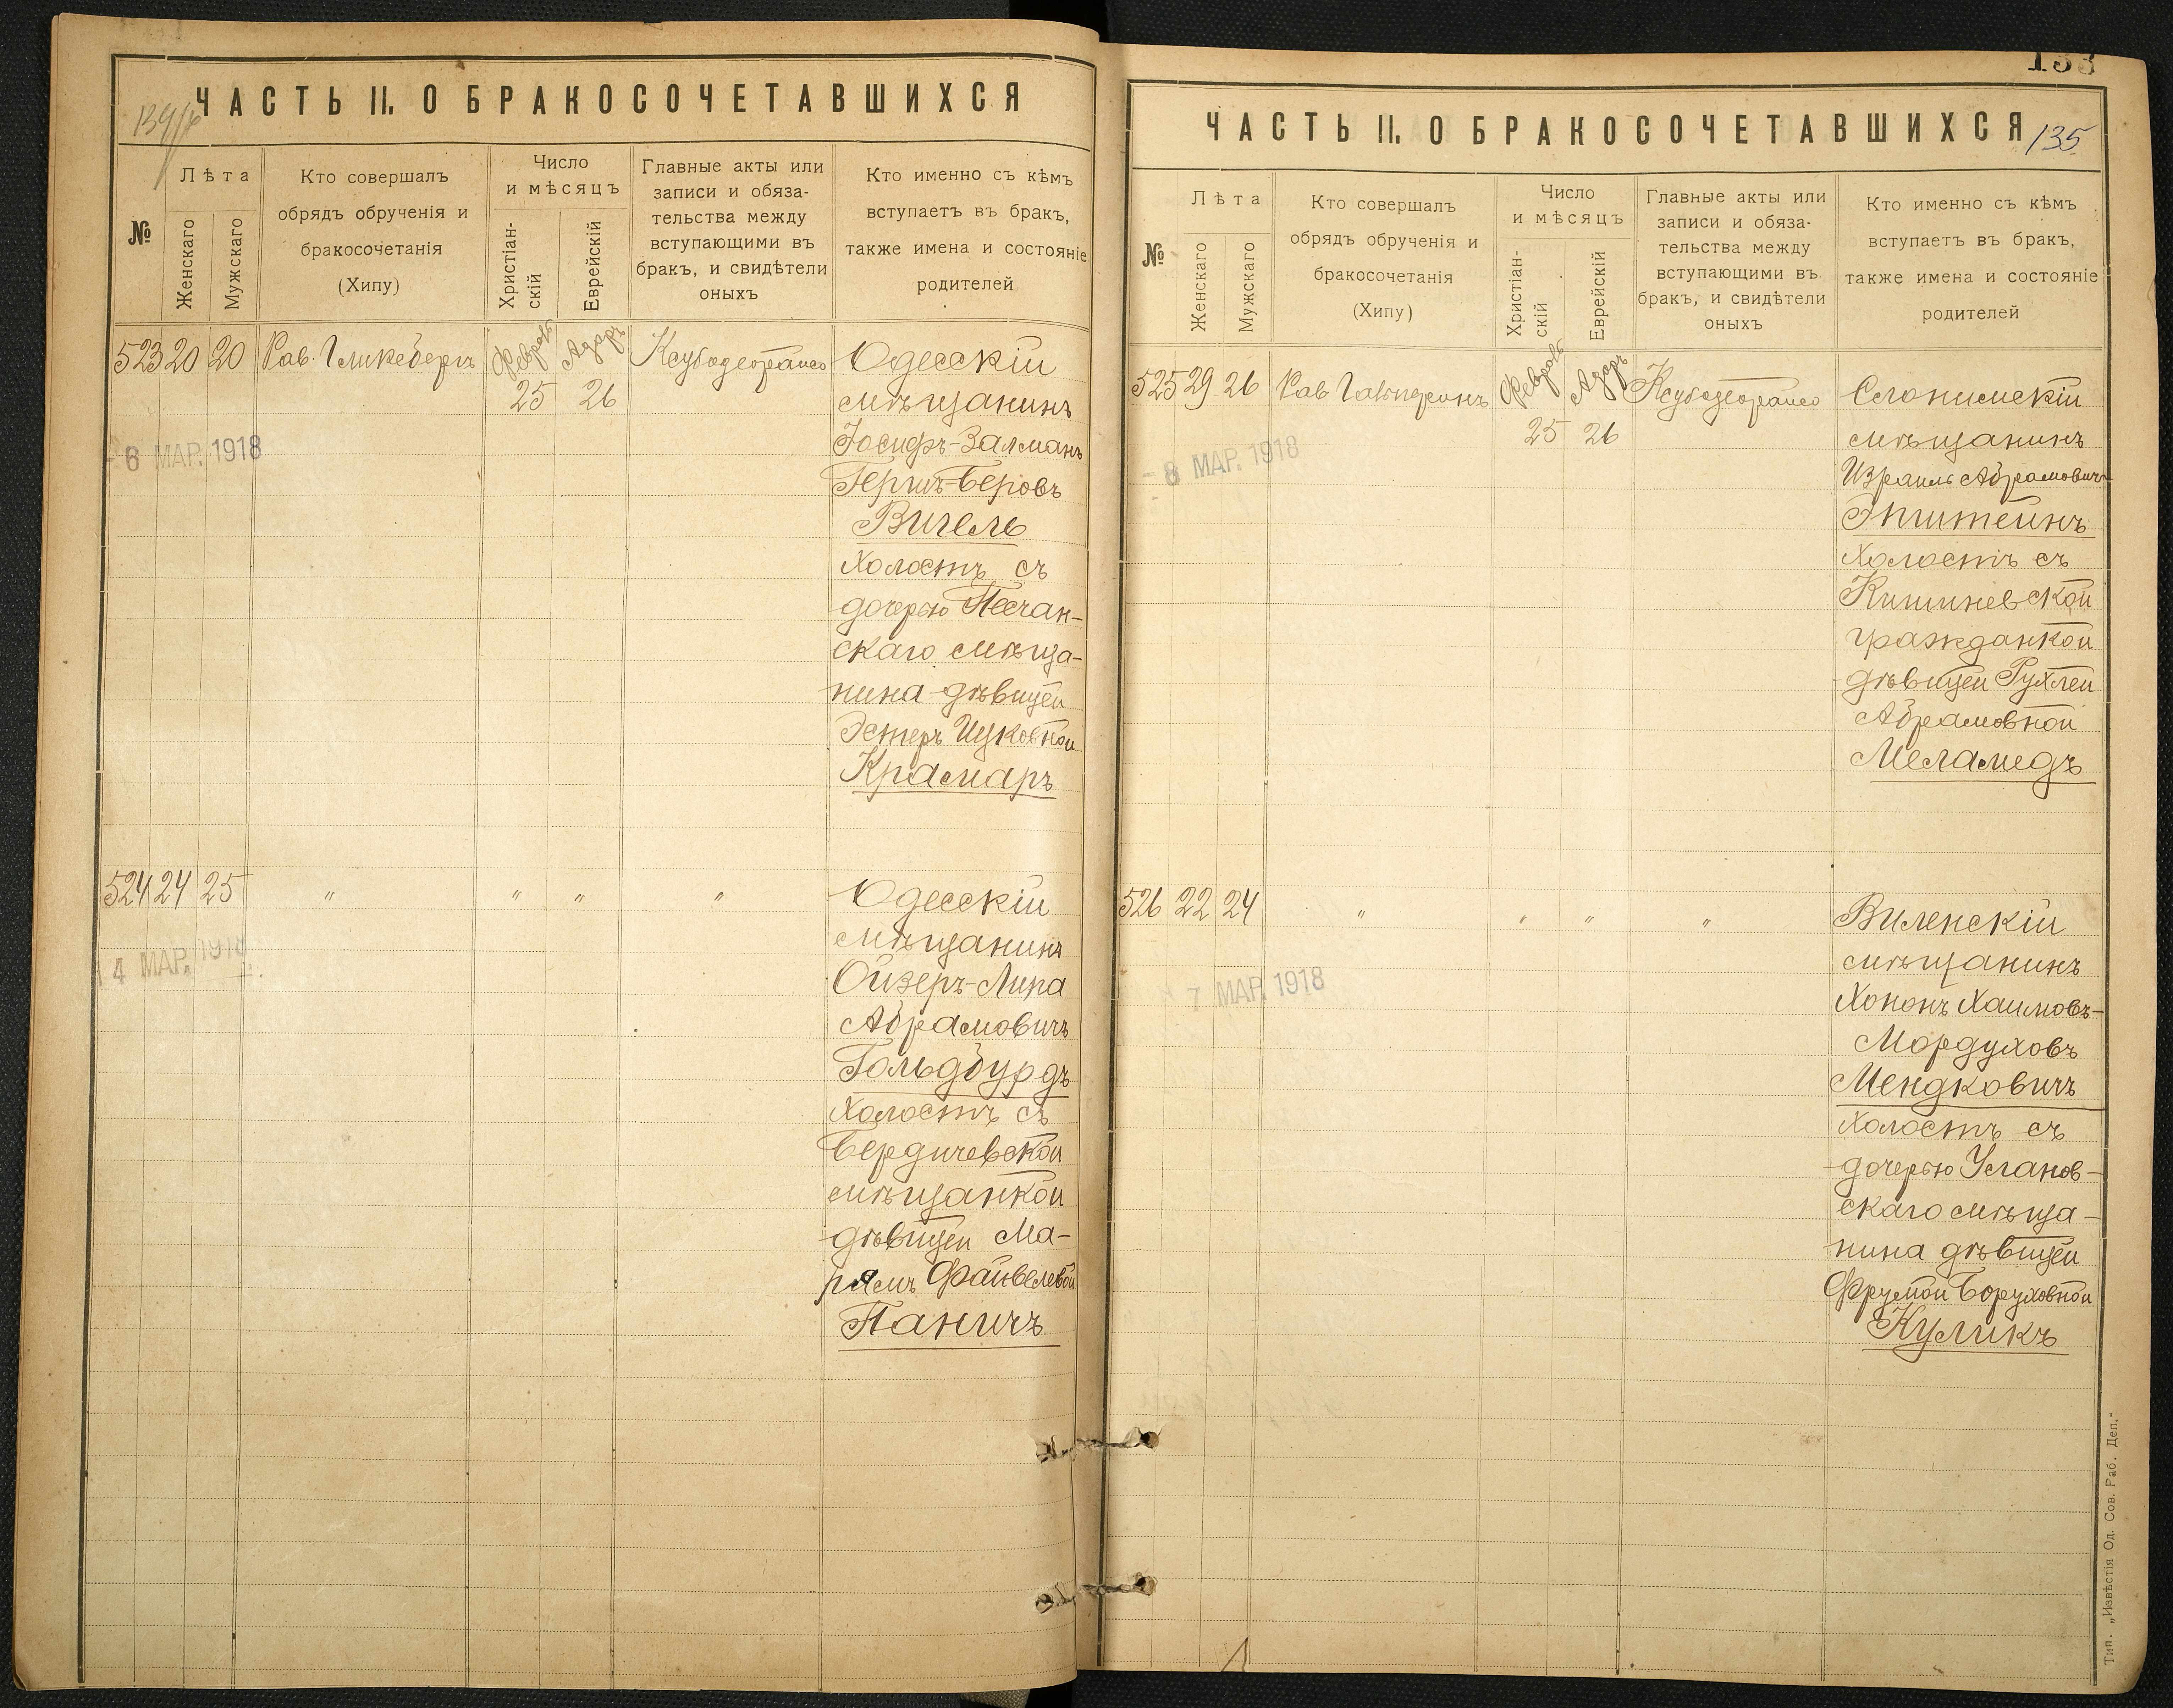 ЧАСТЬ II. О БРАКОСОЧЕТАВШИХСЯ
№
Лѣта
Женскаго
Мужскаго
Кто совершалъ
обрядъ обрученія и
бракосочетанія
(Хипу)
Число
и мѣсяцъ
Христіан-
скій
Еврейскій
Главные акты или
записи и обяза-
тельства между
вступающими въ
бракъ, и свидѣтели
оныхъ
Кто именно съ кѣмъ
вступаетъ въ бракъ,
также имена и состояніе
родителей
523 20 20 Рав. Гликсбергъ Февраль 25 Адаръ 26
6 МАР. 1918
Одесскій
мѣщанинъ
Іосифъ-Залманъ
Гершъ-Беровъ
Вигель
холостъ съ
дочерью Песчан-
скаго мѣща-
нина дѣвицей
Эстеръ Ицковной
Крамаръ
524 24 25 " " " "
14 МАР. 1918
Одесскій
мѣщанинъ
Ойзеръ-Липа
Абрамовичъ
Гольдбурдъ
холостъ съ
Бердичевской
мѣщанкой
дѣвицей Ма-
рямъ Файвелевой
Паничъ
133
ЧАСТЬ II. О БРАКОСОЧЕТАВШИХСЯ
135
№
Лѣта
Женскаго
Мужскаго
Кто совершалъ
обрядъ обрученія и
бракосочетанія
(Хипу)
Число
и мѣсяцъ
Христіан-
скій
Еврейскій
Главные акты или
записи и обяза-
тельства между
вступающими въ
бракъ, и свидѣтели
оныхъ
Кто именно съ кѣмъ
вступаетъ въ бракъ,
также имена и состояніе
родителей
525 29 26 Рав Февраль 25 Адаръ 26
8 МАР. 1918
Слонимскій
мѣщанинъ
Израиль Абрамовичъ
Эпштейнъ
холостъ съ
Кишиневской
гражданкой
дѣвицей Рухлей
Абрамовной
Меламедъ
526 22 24 " " " "
7 МАР. 1918
Виленскій
мѣщанинъ
Хононъ Хаимовъ-
Мордуховъ
Мендковичъ
холостъ съ
дочерью Уланов-
скаго мѣща-
нина дѣвицей
Фрумой Боруховной
Куликъ
Тип. „Извѣстія Од. Сов. Раб. Деп."